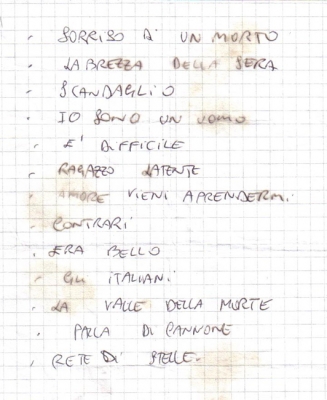 - SORRISO DI UN MORTO
- LA BREZZA DELLA SERA
- SCANDAGLIO
- IO SONO UN UOMO
- E' DIFFICILE
- RAGAZZO LATENTE
- AMORE VIENI A PRENDERMI
- CONTRARI
- ERA BELLO
- GLI ITALIANI
- LA VALLE DELLA MORTE
- PALLA DI CANNONE
- RETE DI STELLE.